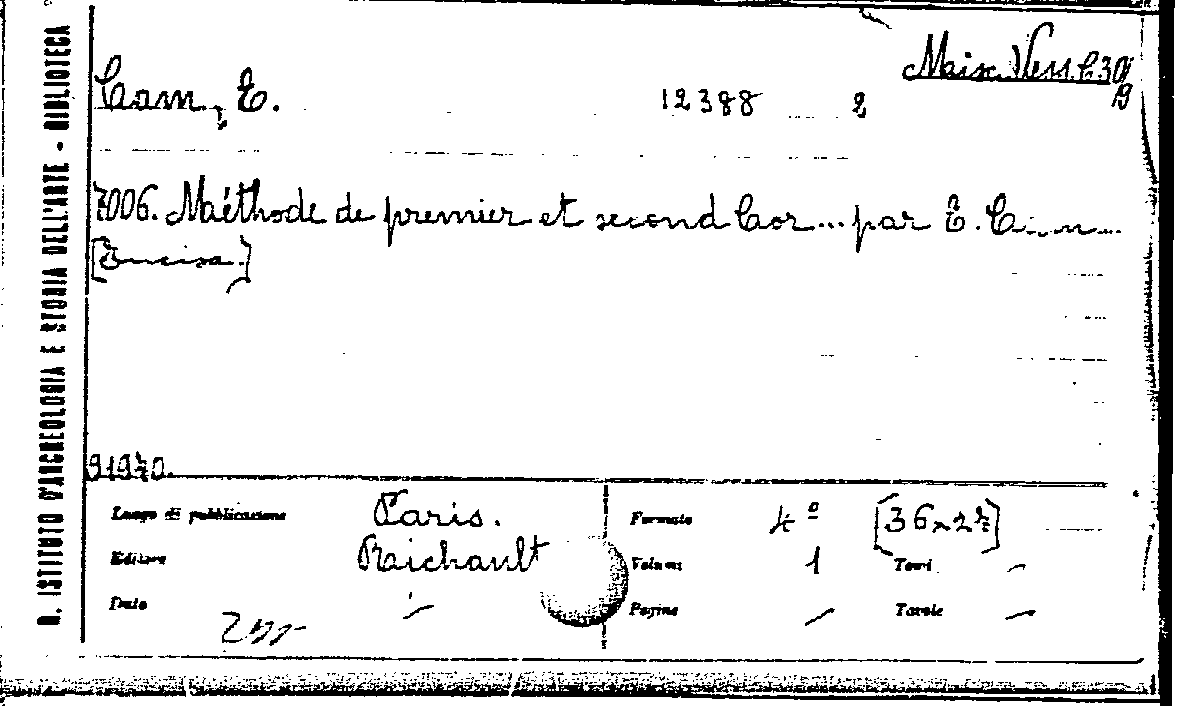 R. ISTITUTO D'ARCHEOLOGIA E STORIA DELL'ARTE - BIBLIOTECA
Mus. Vess. C 30/
B
Cam, E.
12388 2
7006. Méthode de premier et second Cor... par E. Cam...
[Incisa.]
91970.
Luogo di pubblicazione Paris.
Formato 4º [36x27]
Editore Richault
Volumi 1 Tomi -
Data -
Pagine - Tavole -